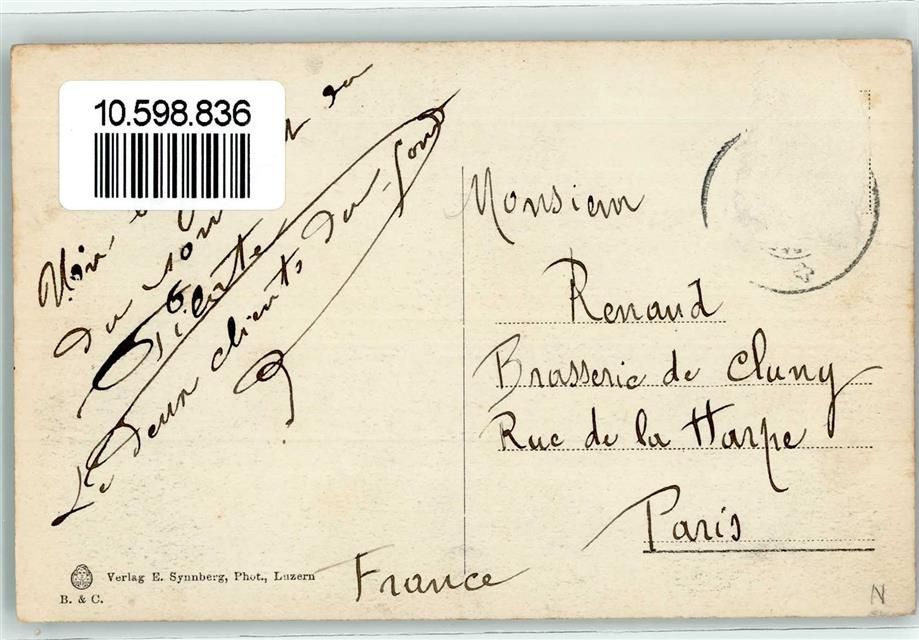 10.598.836
du
Le deux clients du fond
Monsieur
Renaud
Brasserie de Cluny
Rue de la Harpe
Paris
France
Verlag E. Synnberg, Phot., Luzern
B. & C.
N